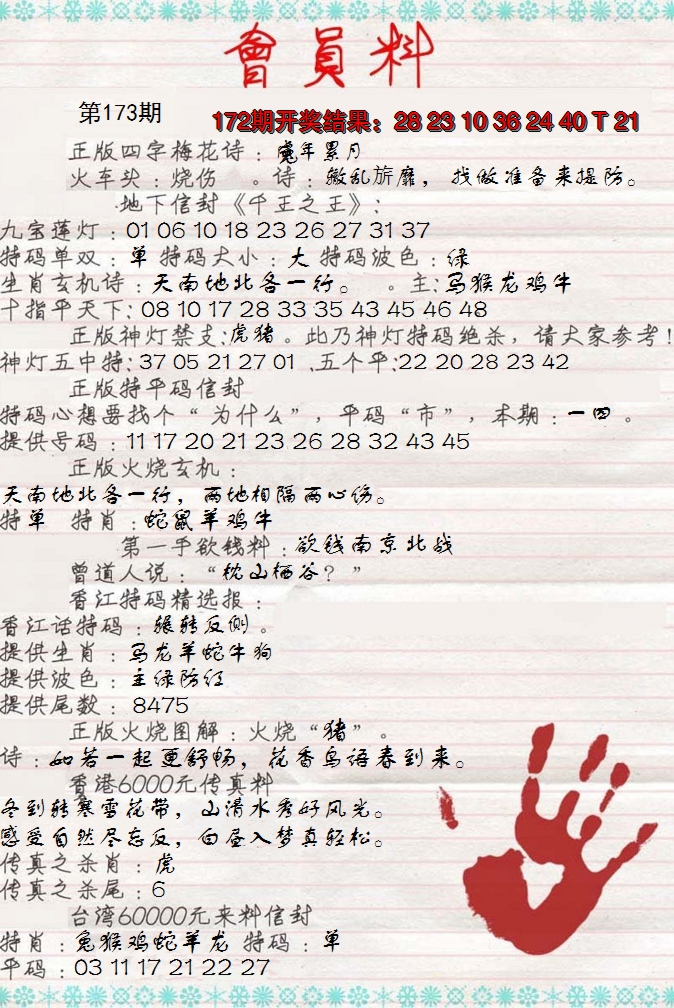 會員料
第173期
172期开奖结果：28 23 10 36 24 40 T 21
正版四字梅花诗：年累月
火车头：烧伤 。诗：散乱旂靡，找做准备来提防。
地下信封《千王之王》：
九宝莲灯：01 06 10 18 23 26 27 31 37
特码单双：单 特码大小：大 特码波色：绿
生肖玄机诗：天南地北各一行。 。主：马猴龙鸡牛
十指平天下：08 10 17 28 33 35 43 45 46 48
正版神灯禁支：虎猪。此乃神灯特码绝杀，请大家参考！
神灯五中特：37 05 21 27 01 .五个平：22 20 28 23 42
正版特平码信封
特码心想要找个“为什么”，平码“市”，本期：一四。
提供号码：11 17 20 21 23 26 28 32 43 45
正版火烧玄机：
天南地北各一行，两地相隔两心伤。
特单 特肖：蛇鼠羊鸡牛
第一手欲钱料：欲钱南京北战
曾道人说：“枕山栖谷？”
香江特码精选报：
香江话特码：辗转反侧。
提供生肖：马龙羊蛇牛狗
提供波色：主绿防红
提供尾数：8475
正版火烧图解：火烧“猪”。
诗：如若一起更舒畅，花香鸟语春到来。
香港6000元传真料
冬到转寒雪花带，山清水秀好风光。
感受自然尽忘反，白昼入梦真轻松。
传真之杀肖：虎
传真之杀尾：6
台湾60000元来料信封
特肖：兔猴鸡蛇羊龙 特码：单
平码：03 11 17 21 22 27